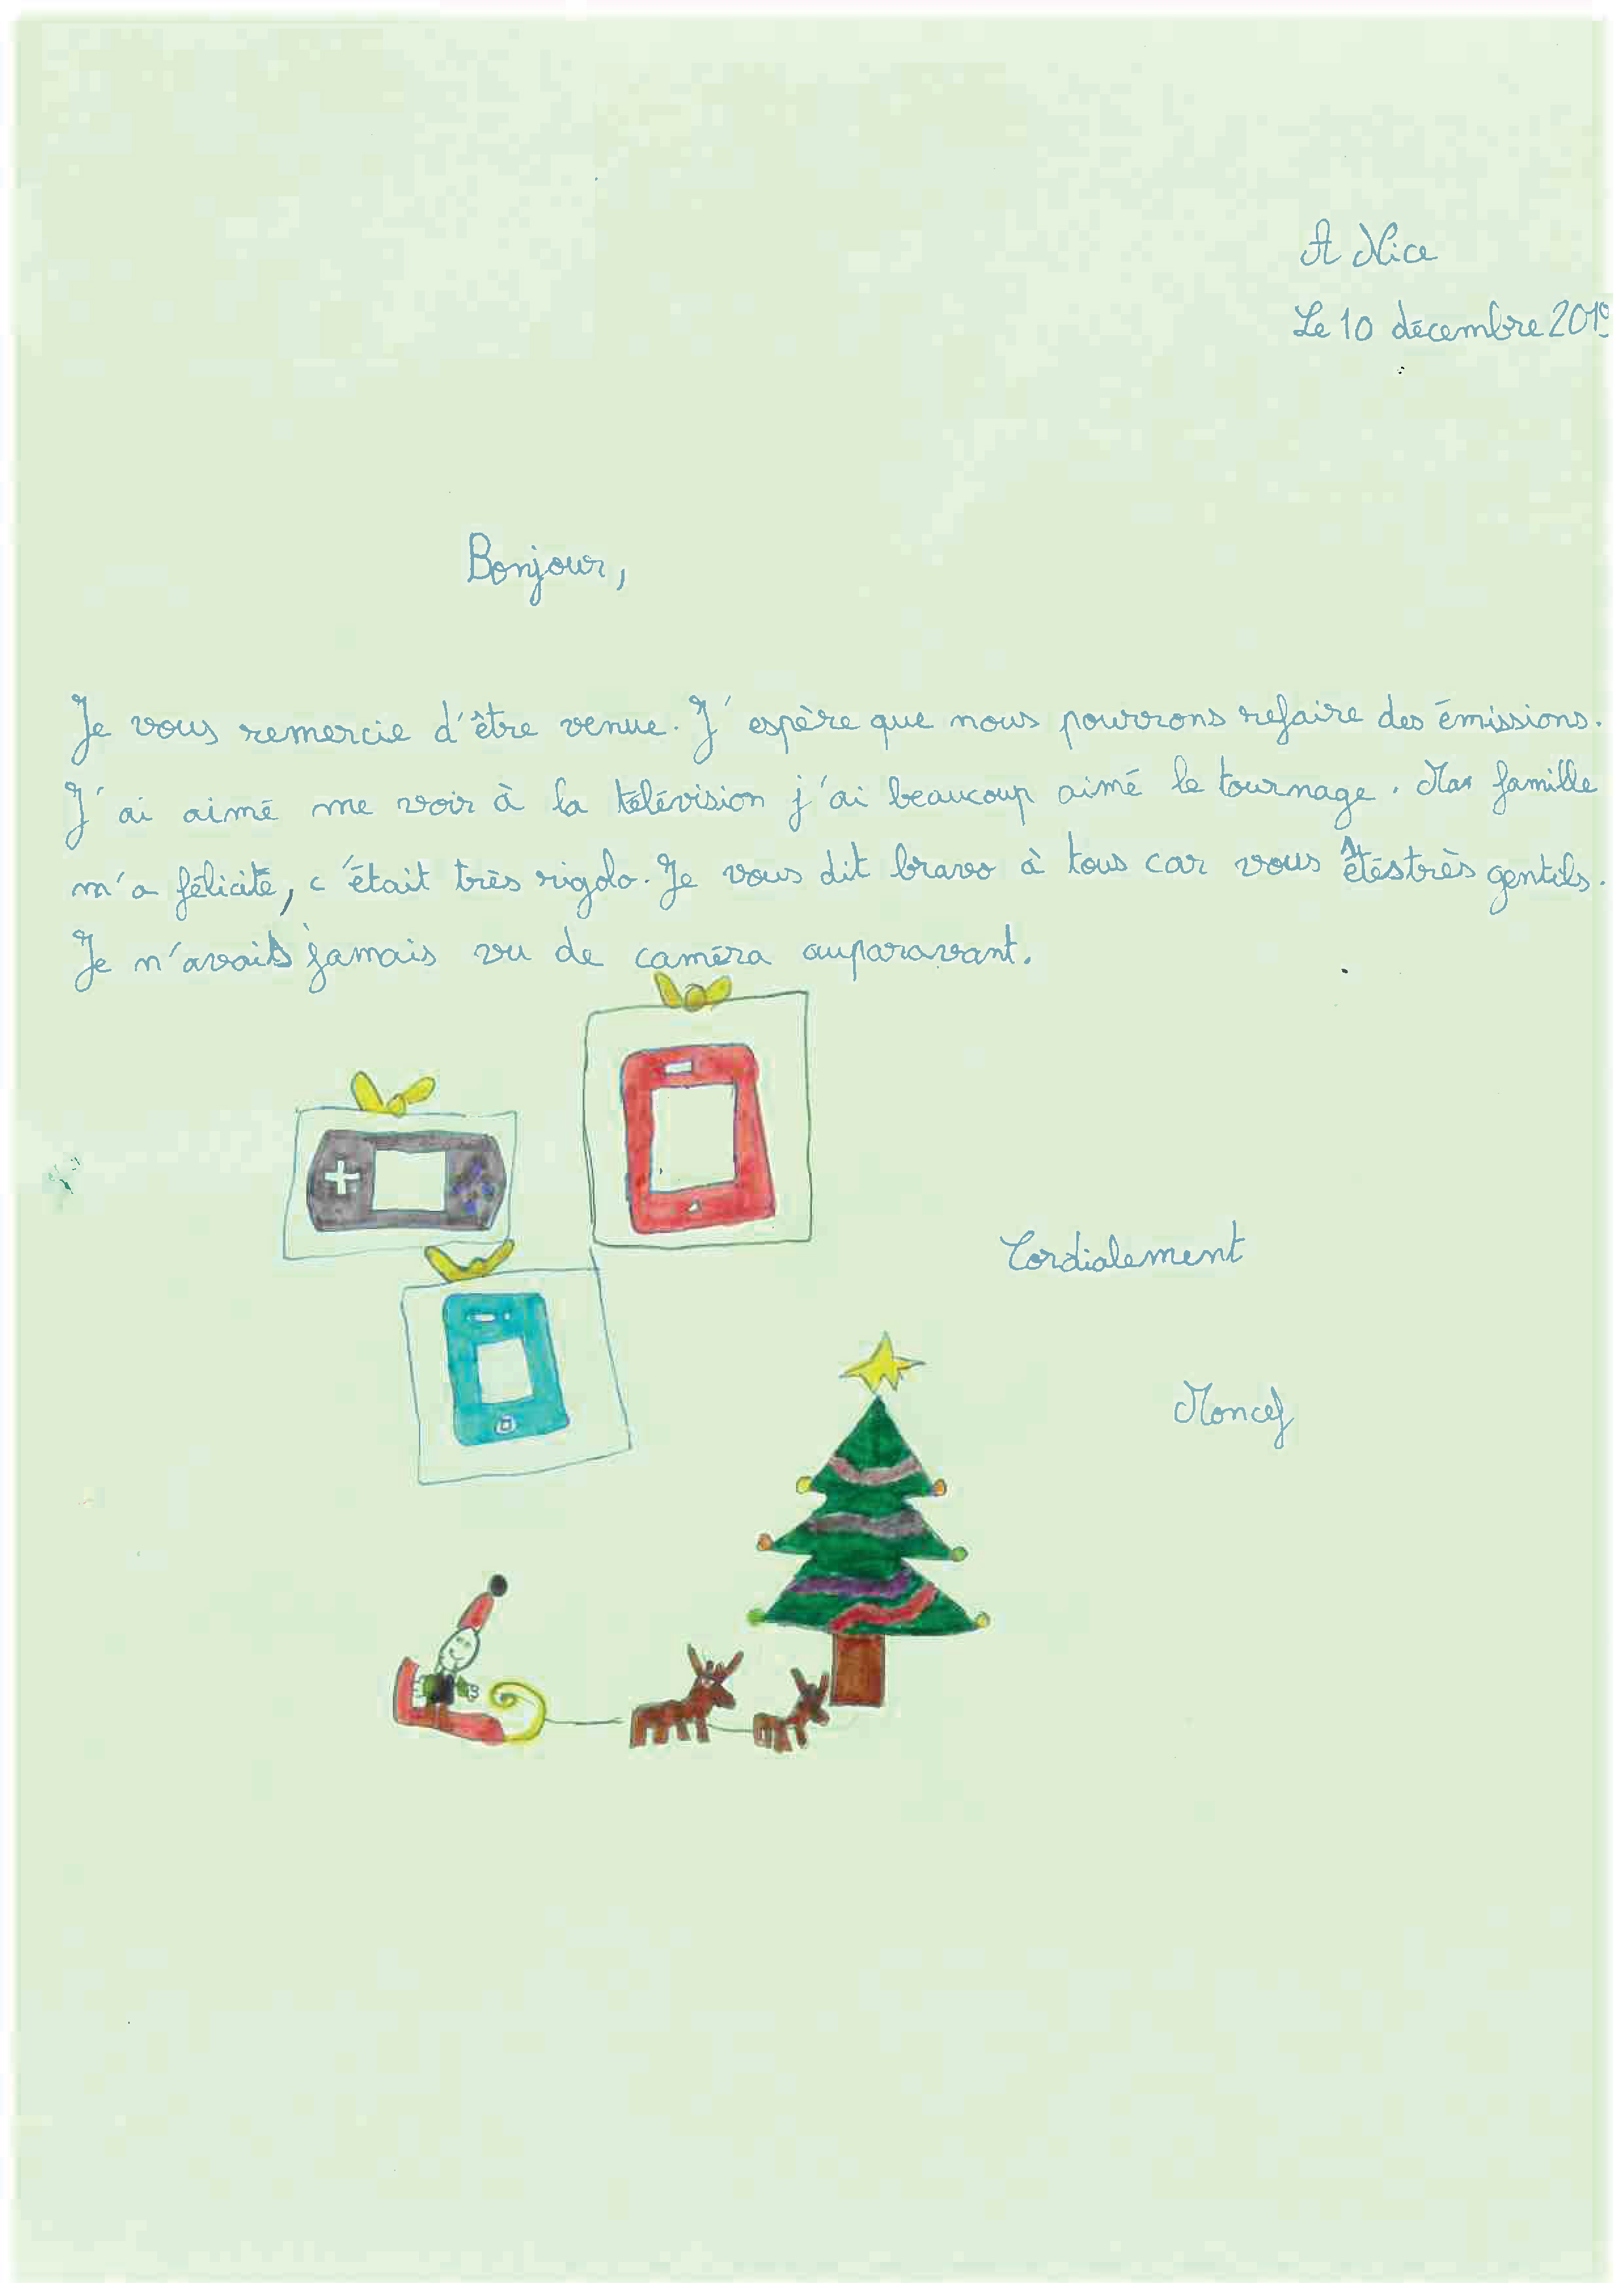 A Nice
Le 10 décembre 2019
Bonjour,
Je vous remercie d'être venue. J'espère que nous pourrons refaire des émissions.
J'ai aimé me voir à la télévision j'ai beaucoup aimé le tournage. Ma famille
m'a félicité, c'était très rigolo. Je vous dit bravo à tous car vous êtés très gentils.
Je n'avais jamais vu de caméra auparavant.
Cordialement
Moncef